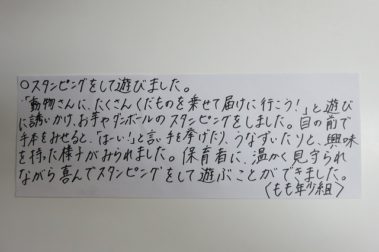 ○スタンピングをして遊びました。
「動物さんに、たくさんくだものを乗せて届けに行こう!」と遊び
に誘いかけ、お芋やダンボールのスタンピングをしました。目の前で
手本をみせると、「はーい!」と言い手を挙げたり、うなずいたりと、興味
を持った様子がみられました。保育者に、温かく見守られ
ながら喜んでスタンピングをして遊ぶことができました。
〈もも年少組〉